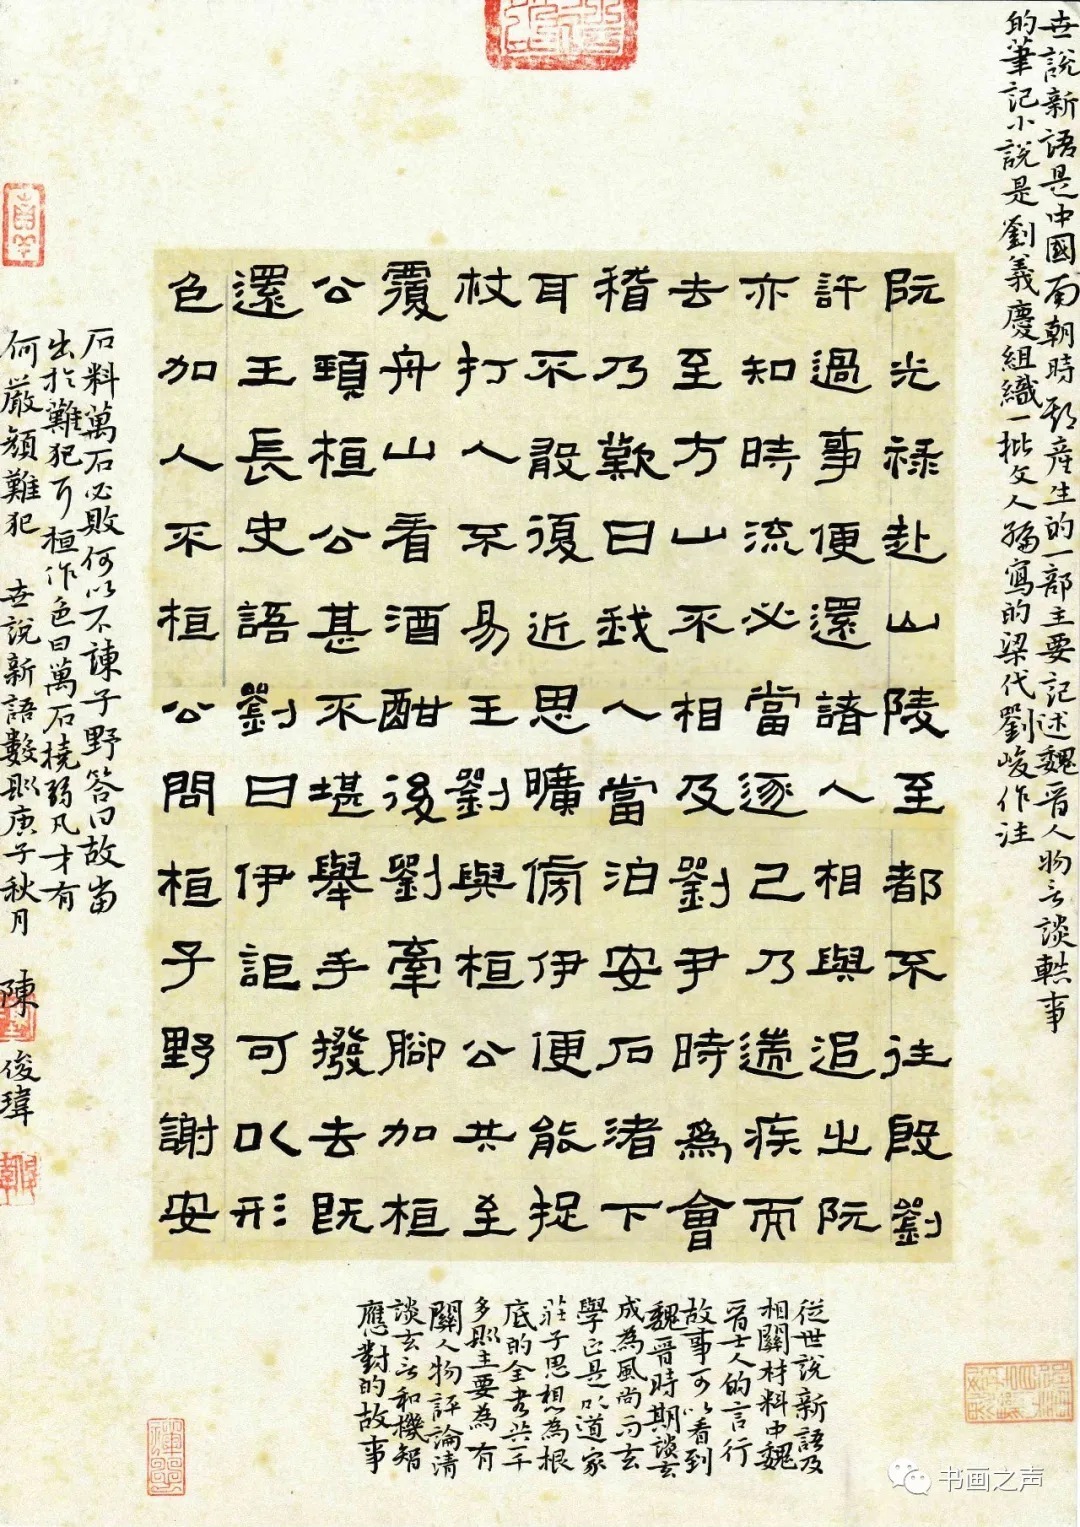 世說新語是中國南朝時期產生的一部主要記述魏晉人物言談軼事
的筆記小說是劉義慶組織一批文人編寫的梁代劉峻作注
阮光祿赴山陵至都不往殷劉
許過事便還諸人相與追之阮
亦知時流必當逐己乃遄疾而
去至方山不相及劉尹時為會
稽乃歎曰我人當泊安石渚下
耳不敢復近思曠傍伊便能捉
杖打人不易王劉與桓公共至
覆舟山看酒酣後劉牽腳加桓
公頸桓公甚不堪舉手撥去既
還王長史語劉曰伊詎可以形
色加人不桓公問桓子野謝安
石料萬石必敗何以不諫子野答曰故當
出於難犯耳桓作色曰萬石撓弱凡才有
何嚴顏難犯 世說新語數則庚子秋月 陳俊瑋
從世說新語及
相關材料中魏
晉士人的言行
故事可以看到
魏晉時期談玄
成為風尚而玄
學正是以道家
莊子思想為根
底的全書共千
多則主要為有
關人物評論清
談玄言和機智
應對的故事
书画之声